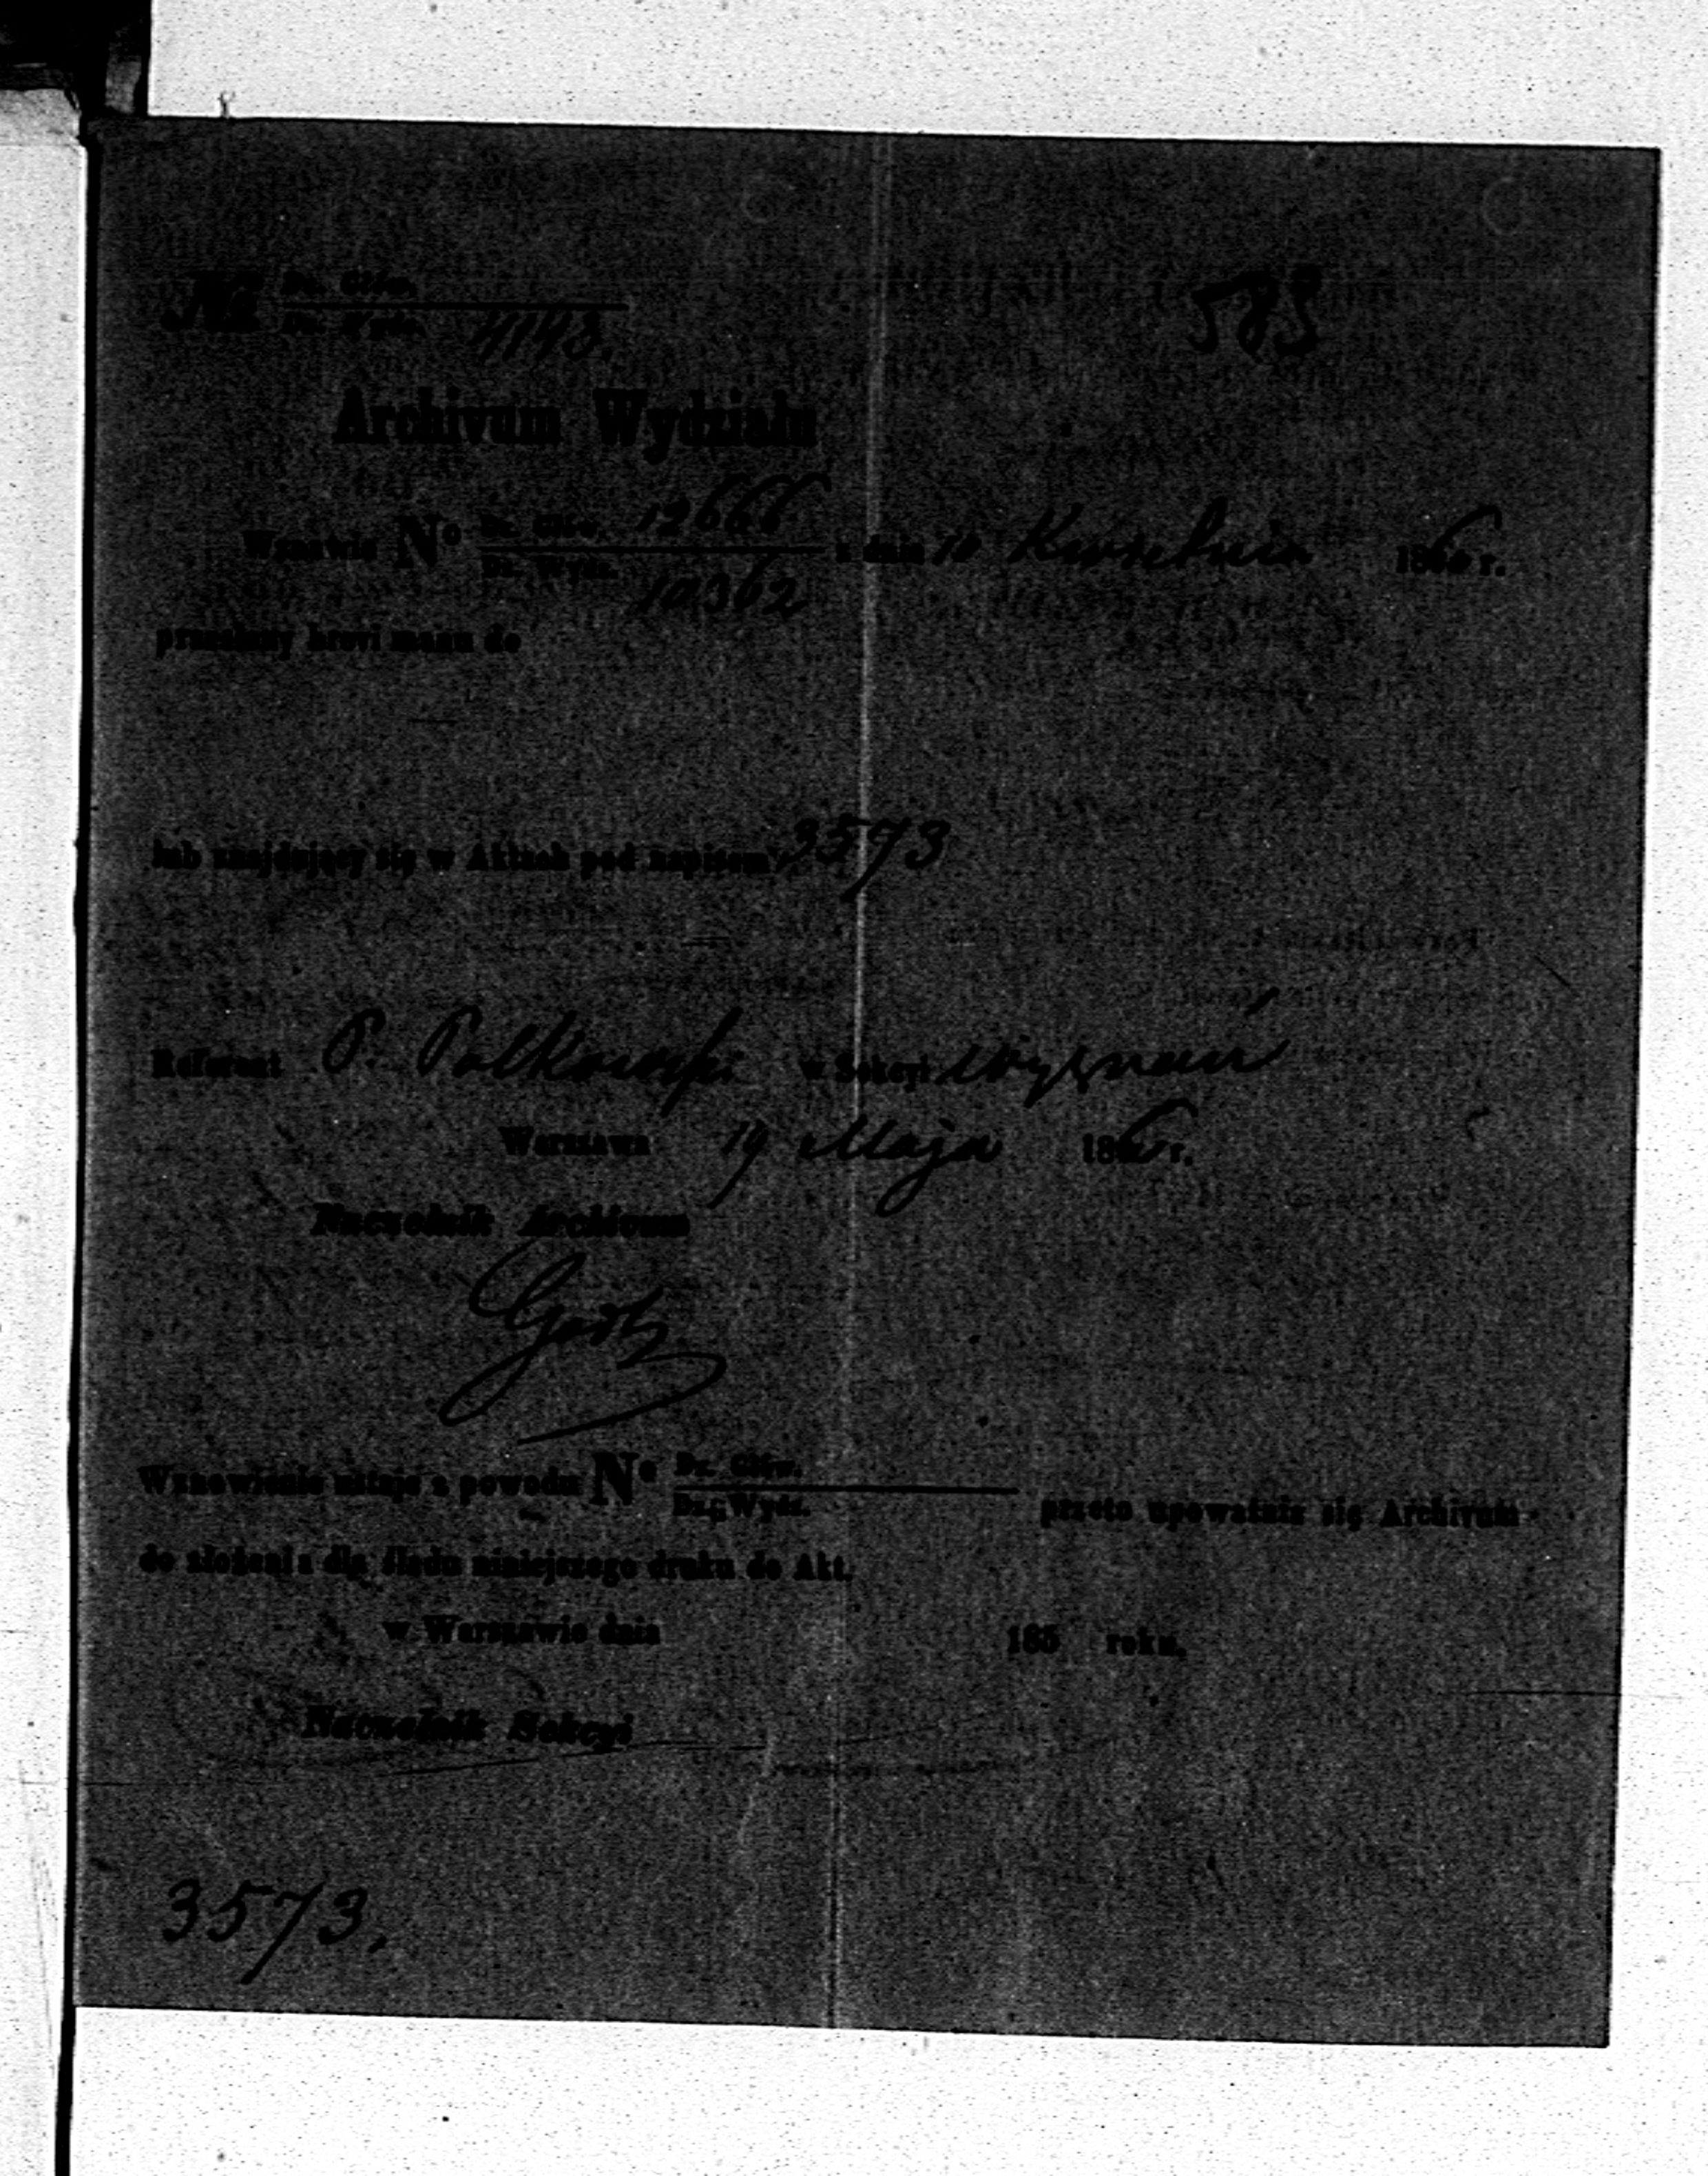 № Dz. Głów.
Dz. Wydz. 4143.
583
Archivum Wydziału
Dz. Głów. 12666
Wznawia No z dnia 10 Kwietnia 186 r.
Dz. Wydz. 10362
przesłany brevi manu do
lub znajdujący się w Aktach pod napisem 3573
Referent P. Polkowski w Sekcyi Wyznań
Warszawa 19 Maja 186 r.
Naczelnik Archivum
Wznowienie ustaje z powodu No Dz. Głów.
Dz. Wydz. przeto upoważnia się Archivum
do złożenia dla śladu niniejszego druku do Akt.
w Warszawie dnia 185 roku.
Naczelnik Sekcyi
3573.